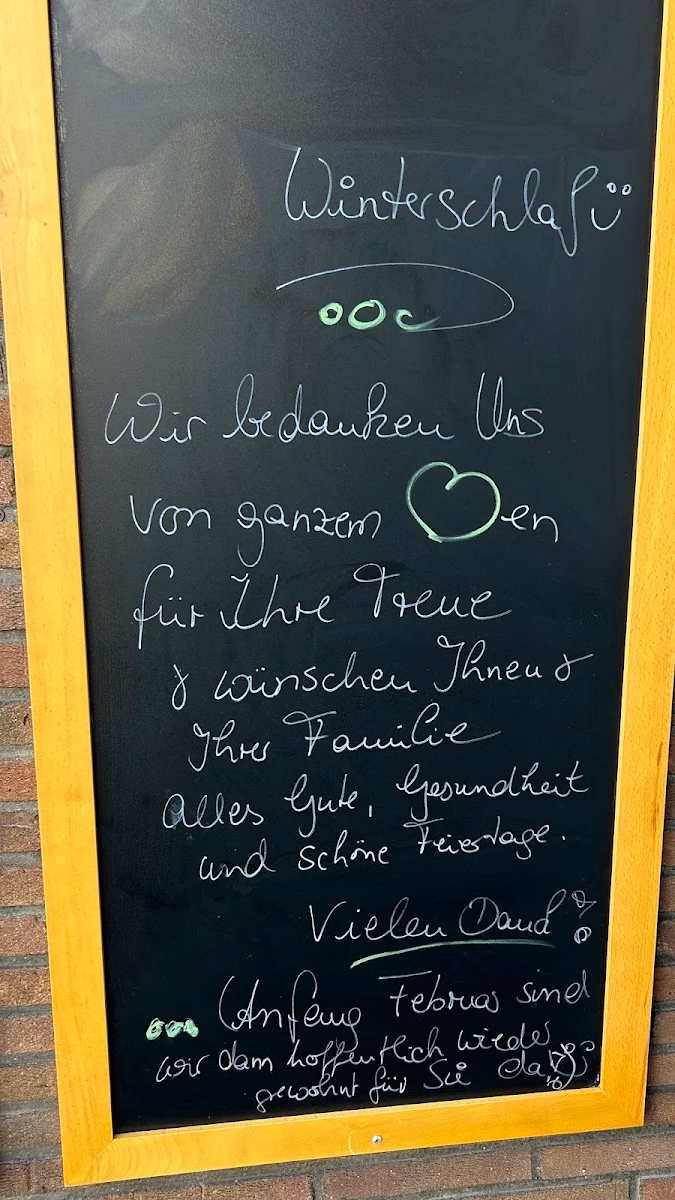 Winterschlaf
Wir bedanken Uns
von ganzem ♡en
für Ihre Treue
& wünschen Ihnen &
Ihrer Familie
alles Gute, Gesundheit
und schöne Feiertage.
Vielen Dank!
(Anfang Februar sind
wir dann hoffentlich wieder
gewohnt für Sie da!)